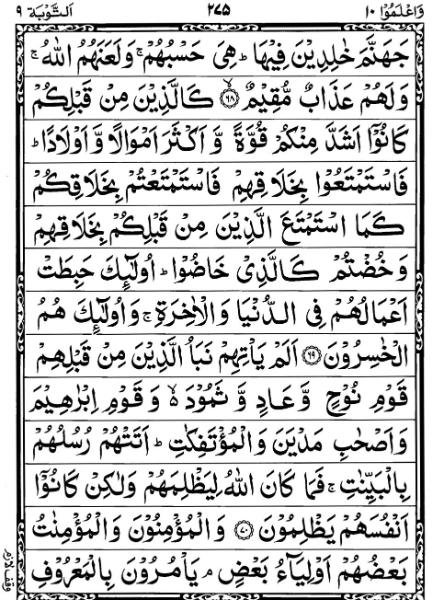 وَاعْلَمُوْۤا ۱۰ ۲۷۵ اَلتَّوْبَة ۹
جَهَنَّمَ خٰلِدِيْنَ فِيْهَا ؕ هِيَ حَسْبُهُمْ ۚ وَلَعَنَهُمُ اللّٰهُ ۚ
وَلَهُمْ عَذَابٌ مُّقِيْمٌ ۙ﴿۶۸﴾ كَالَّذِيْنَ مِنْ قَبْلِكُمْ
كَانُوْۤا اَشَدَّ مِنْكُمْ قُوَّةً وَّ اَكْثَرَ اَمْوَالًا وَّ اَوْلَادًا ؕ
فَاسْتَمْتَعُوْا بِخَلَاقِهِمْ فَاسْتَمْتَعْتُمْ بِخَلَاقِكُمْ
كَمَا اسْتَمْتَعَ الَّذِيْنَ مِنْ قَبْلِكُمْ بِخَلَاقِهِمْ
وَ خُضْتُمْ كَالَّذِيْ خَاضُوْا ؕ اُولٰٓئِكَ حَبِطَتْ
اَعْمَالُهُمْ فِي الدُّنْيَا وَ الْاٰخِرَةِ ۚ وَ اُولٰٓئِكَ هُمُ
الْخٰسِرُوْنَ ﴿۶۹﴾ اَلَمْ يَاْتِهِمْ نَبَاُ الَّذِيْنَ مِنْ قَبْلِهِمْ
قَوْمِ نُوْحٍ وَّ عَادٍ وَّ ثَمُوْدَ ۙ۬ وَ قَوْمِ اِبْرٰهِيْمَ
وَ اَصْحٰبِ مَدْيَنَ وَ الْمُؤْتَفِكٰتِ ؕ اَتَتْهُمْ رُسُلُهُمْ
بِالْبَيِّنٰتِ ۚ فَمَا كَانَ اللّٰهُ لِيَظْلِمَهُمْ وَلٰكِنْ كَانُوْۤا
اَنْفُسَهُمْ يَظْلِمُوْنَ ﴿۷۰﴾ وَ الْمُؤْمِنُوْنَ وَ الْمُؤْمِنٰتُ
بَعْضُهُمْ اَوْلِيَآءُ بَعْضٍ ۘ يَاْمُرُوْنَ بِالْمَعْرُوْفِ
وقف لازم